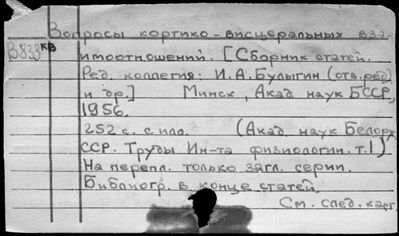 Вопросы кортико-висцеральных вза-
В833кв
имоотношений. [Сборник статей.
Ред. коллегия: И.А. Булыгин (отв. ред)
и др.] Минск, Акад. наук БССР,
1956.
252 с. с илл. (Акад. наук Белорус
ССР. Труды Ин-та физиологии. т.1)
На перепл. только загл. серии.
Библиогр. в конце статей.
См. след. карт.